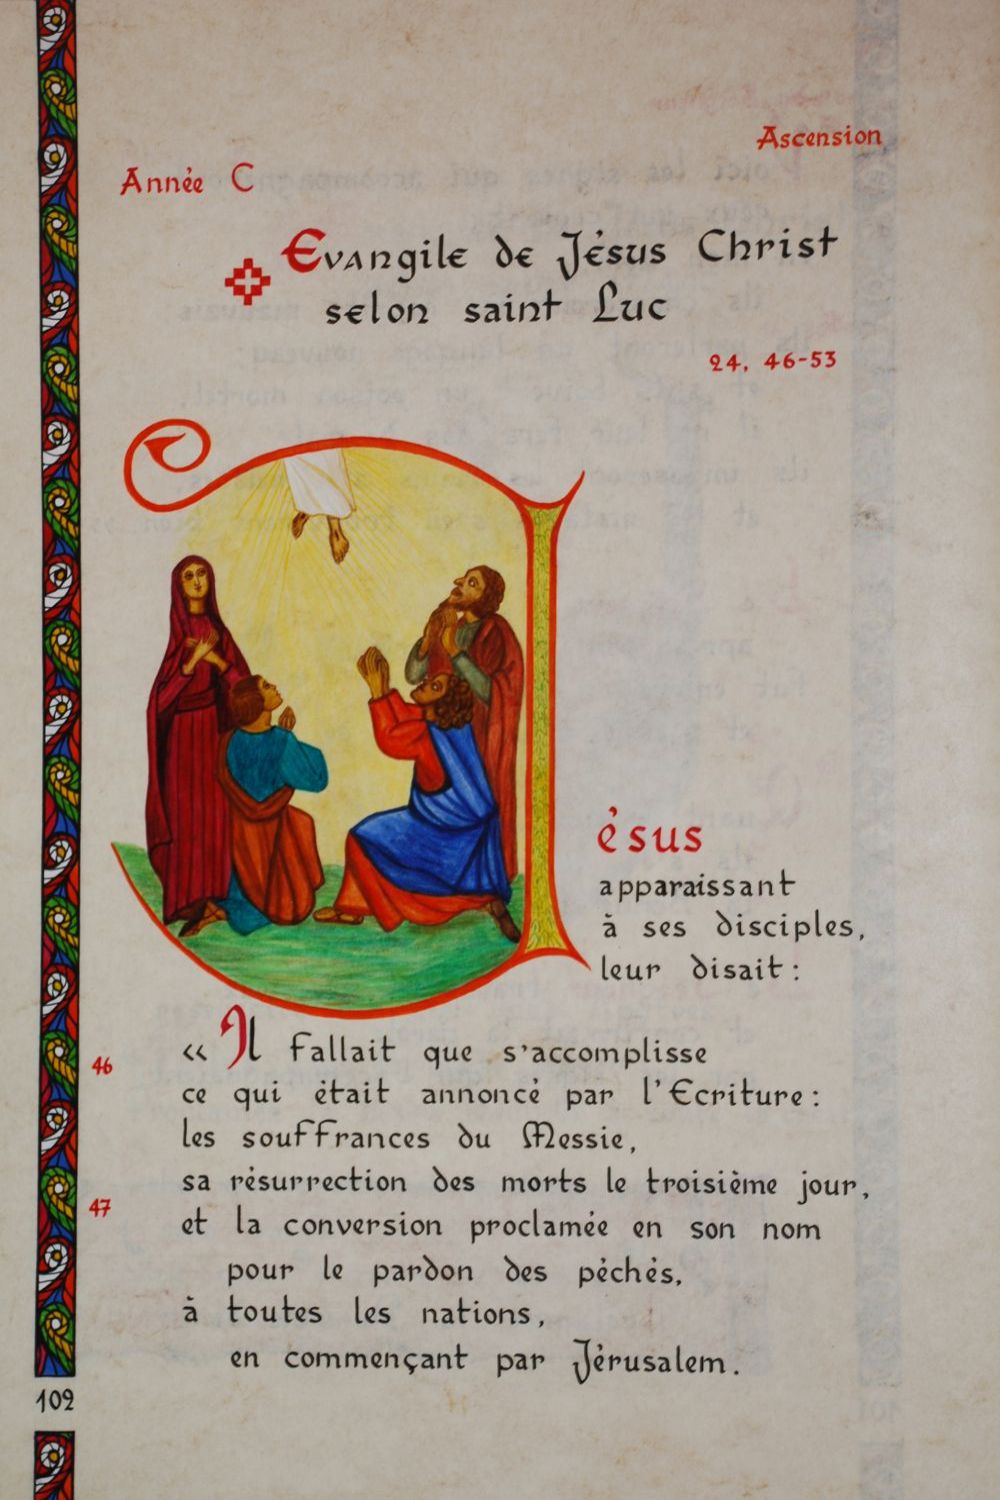 Ascension
Année C
Evangile de Jésus Christ
selon saint Luc
24, 46-53
Jésus
apparaissant
à ses disciples,
leur disait :
46 « Il fallait que s'accomplisse
ce qui était annoncé par l'Ecriture :
les souffrances du Messie,
sa résurrection des morts le troisième jour,
47 et la conversion proclamée en son nom
pour le pardon des péchés,
à toutes les nations,
en commençant par Jérusalem.
102